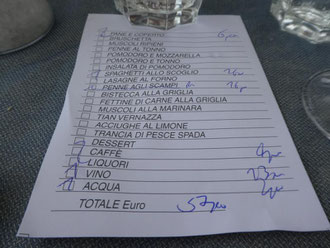 PANE E COPERTO
BRUSCHETTA
MUSCOLI RIPIENI
PENNE AL TONNO
POMODORO E MOZZARELLA
POMODORO E TONNO
INSALATA DI POMODORO
SPAGHETTI ALLO SCOGLIO
LASAGNE AL FORNO
PENNE AGLI SCAMPI
BISTECCA ALLA GRIGLIA
FETTINE DI CARNE ALLA GRIGLIA
MUSCOLI ALLA MARINARA
TIAN VERNAZZA
ACCIUGHE AL LIMONE
TRANCIA DI PESCE SPADA
DESSERT
CAFFÈ
LIQUORI
VINO
ACQUA
TOTALE Euro 57